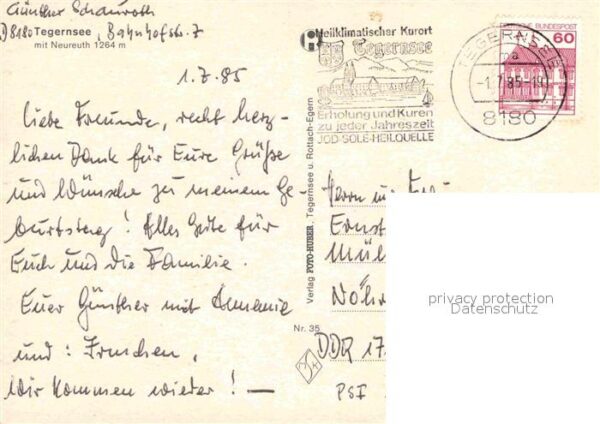 Günther Schauroth
D8180 Tegernsee, Bahnhofstr. 7
mit Neureuth 1264 m
1.7.85
Liebe Freunde, recht herz-
lichen Dank für Eure Grüße
und Wünsche zu meinem Ge-
burtstag! Alles Gute für
Euch und die Familie.
Euer Günther mit
und:
Wir kommen wieder! —
Verlag FOTO-HUBER, Tegernsee u. Rottach-Egern
Nr. 35
Heilklimatischer Kurort
Tegernsee
Erholung und Kuren
zu jeder Jahreszeit
JOD-SOLE-HEILQUELLE
TEGERNSEE
a
-1.7.85-19
8180
DEUTSCHE BUNDESPOST
60
Herrn u.
Ernst
Mül
Nöhr
DDR 17
PSF
privacy protection
Datenschutz